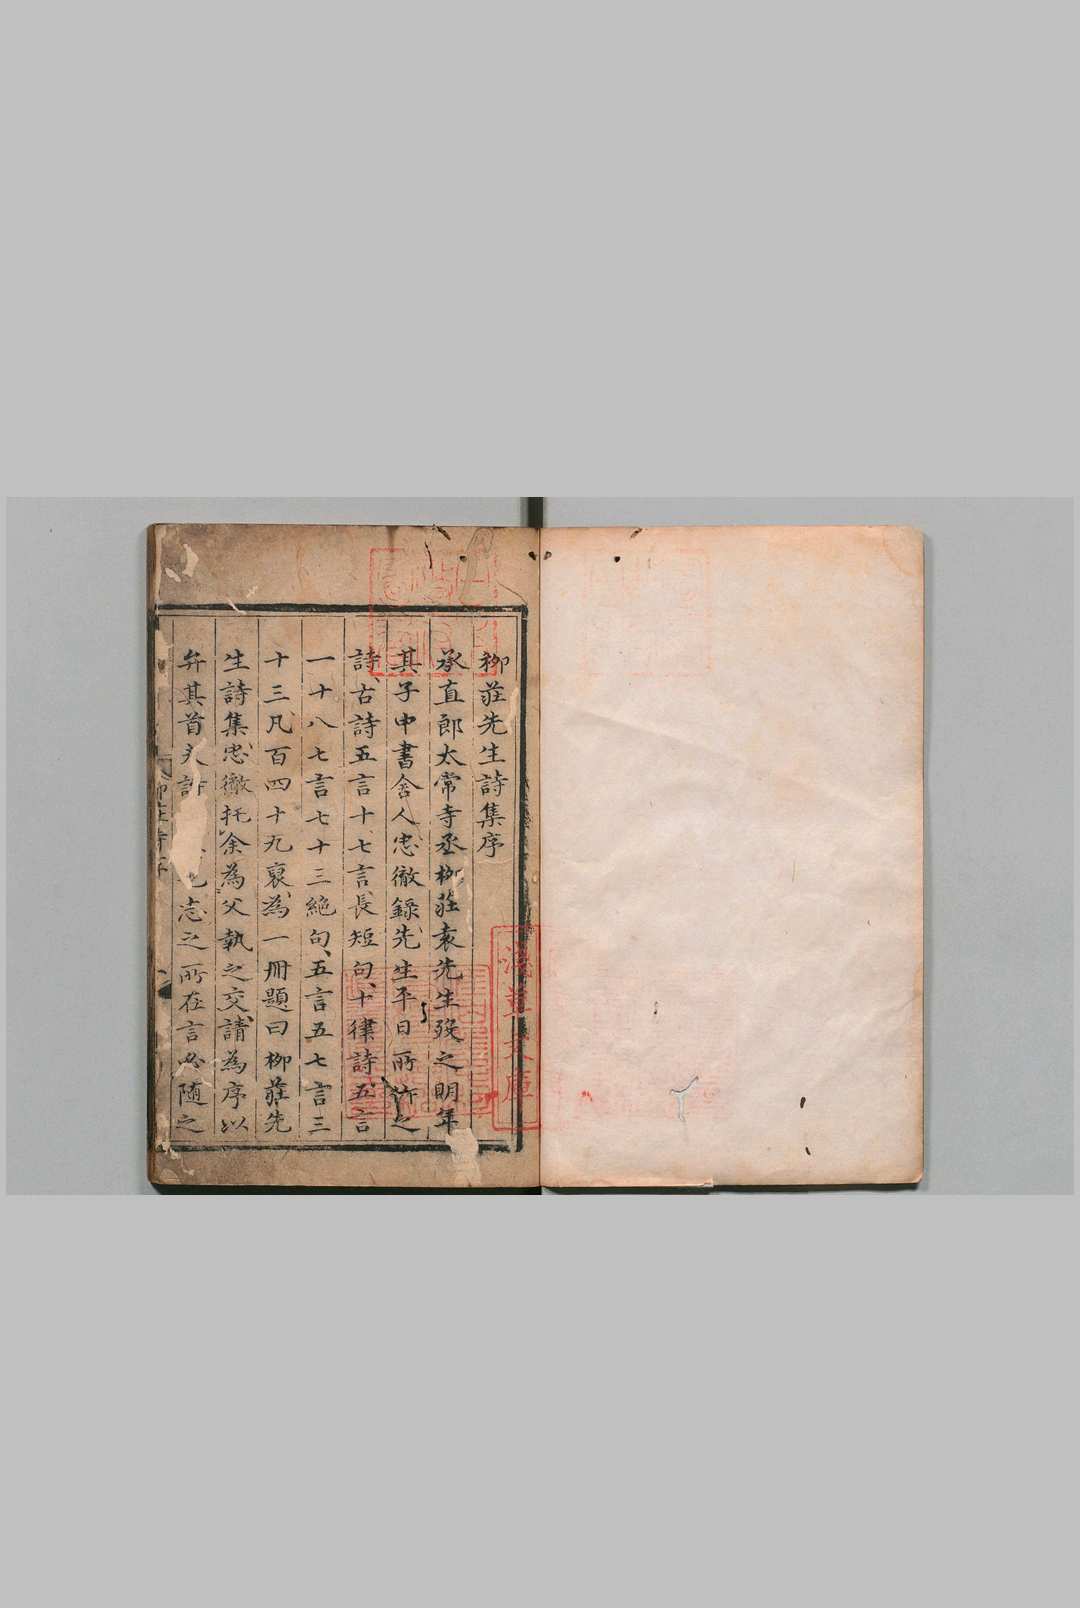 柳莊先生詩集序
承直郎太常寺丞柳莊袁先生歿之明年
其子中書舍人忠徹錄先生平日所作之
詩古詩五言十七言長短句十律詩五言
一十八七言七十三絕句五言五七言三
十三凡百四十九裒為一冊題曰柳莊先
生詩集忠徹托余為父執之交請為序以
弁其首夫詩 志之所在言必隨之
淺草文庫